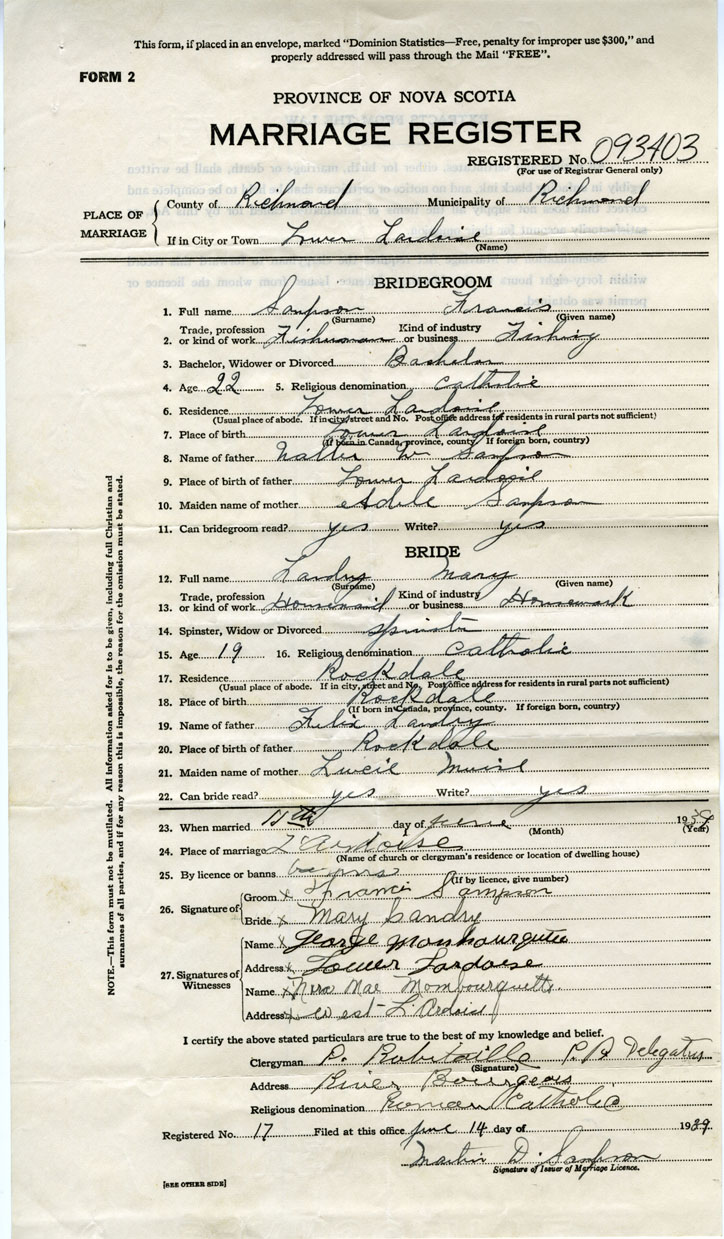 This form, if placed in an envelope, marked "Dominion Statistics—Free, penalty for improper use $300," and
properly addressed will pass through the Mail "FREE".
FORM 2
PROVINCE OF NOVA SCOTIA
MARRIAGE REGISTER
REGISTERED No. 093403
(For use of Registrar General only)
PLACE OF MARRIAGE
County of Richmond Municipality of Richmond
If in City or Town Lower Lardoise
(Name)
BRIDEGROOM
1. Full name Sampson Francis
(Surname) (Given name)
2. Trade, profession or kind of work Fisherman Kind of industry or business Fishing
3. Bachelor, Widower or Divorced Bachelor
4. Age 22 5. Religious denomination Catholic
6. Residence Lower Lardoise
(Usual place of abode. If in city, street and No. Post office address for residents in rural parts not sufficient)
7. Place of birth Lower Lardoise
(If born in Canada, province, county. If foreign born, country)
8. Name of father Walter W Sampson
9. Place of birth of father Lower Lardoise
10. Maiden name of mother Adele Sampson
11. Can bridegroom read? yes Write? yes
BRIDE
12. Full name Landry Mary
(Surname) (Given name)
13. Trade, profession or kind of work Housemaid Kind of industry or business Housework
14. Spinster, Widow or Divorced spinster
15. Age 19 16. Religious denomination Catholic
17. Residence Rockdale
(Usual place of abode. If in city, street and No. Post office address for residents in rural parts not sufficient)
18. Place of birth Rockdale
(If born in Canada, province, county. If foreign born, country)
19. Name of father Felix Landry
20. Place of birth of father Rockdale
21. Maiden name of mother Lucil
22. Can bride read? yes Write? yes
23. When married day of june 19
(Month) (Year)
24. Place of marriage L'Ardoise
(Name of church or clergyman's residence or location of dwelling house)
25. By licence or banns banns
(If by licence, give number)
26. Signature of
Groom x Francis Sampson
Bride x Mary Landry
27. Signatures of Witnesses
Name x George
Address x Lower Lardoise
Name x Mae Mombourquette
Address x West L'Ardoise
I certify the above stated particulars are true to the best of my knowledge and belief.
Clergyman P. Robitaille Delegatus
(Signature)
Address River Bourgeois
Religious denomination Roman Catholic
Registered No. 17 Filed at this office june 14 day of 1939
Martin D. Sampson
Signature of Issuer of Marriage Licence.
[SEE OTHER SIDE]
NOTE.—This form must not be mutilated. All information asked for is to be given, including full Christian and
surnames of all parties, and if for any reason this is impossible, the reason for the omission must be stated.